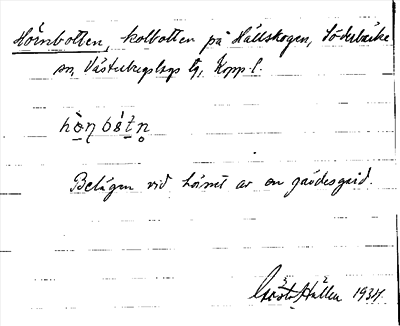 Hörnbotten, kolbotten på Hällskogen, Söderbärke
sn, Västerbergslags tg, Kopp. l.
hö̀ɳbót̠n̥
Belägen vid hörnet av en gärdesgård.
Gösta Hallén 1934